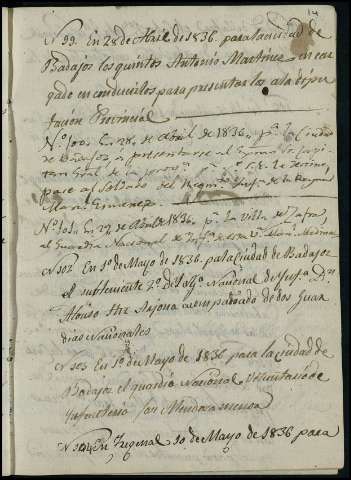 N 99. En 28 de Abril de 1836. para la ciudad de
Badajoz los quintos Antonio Martinez en car
gado en conducirlos para presentarlos a la dipu
tacion Provincial
Nº 100. En 28 de Abril de 1836. pª la Ciudad
de Badajoz a presentarse al
pase al Soldado del Regimtº Infª de la Reyna
Nº 101. En 29 de Abril de 1836. pª la Villa de Zafra,
el Guardia Nacional de Infª de esta Vª Man. Medina
N 102 En 1º de Mayo de 1836. para la Ciudad de Badajoz
el subteniente 2º de la Nacional de Ynfª Dn
Alonso acompañado de dos Guar
dias Nacionales
N 103 En 1º de Mayo de 1836 para la ciudad de
Badajoz el guardia Nacional Voluntario de
Ynfanteria
N 104 En Fregenal 10 de Mayo de 1836 para